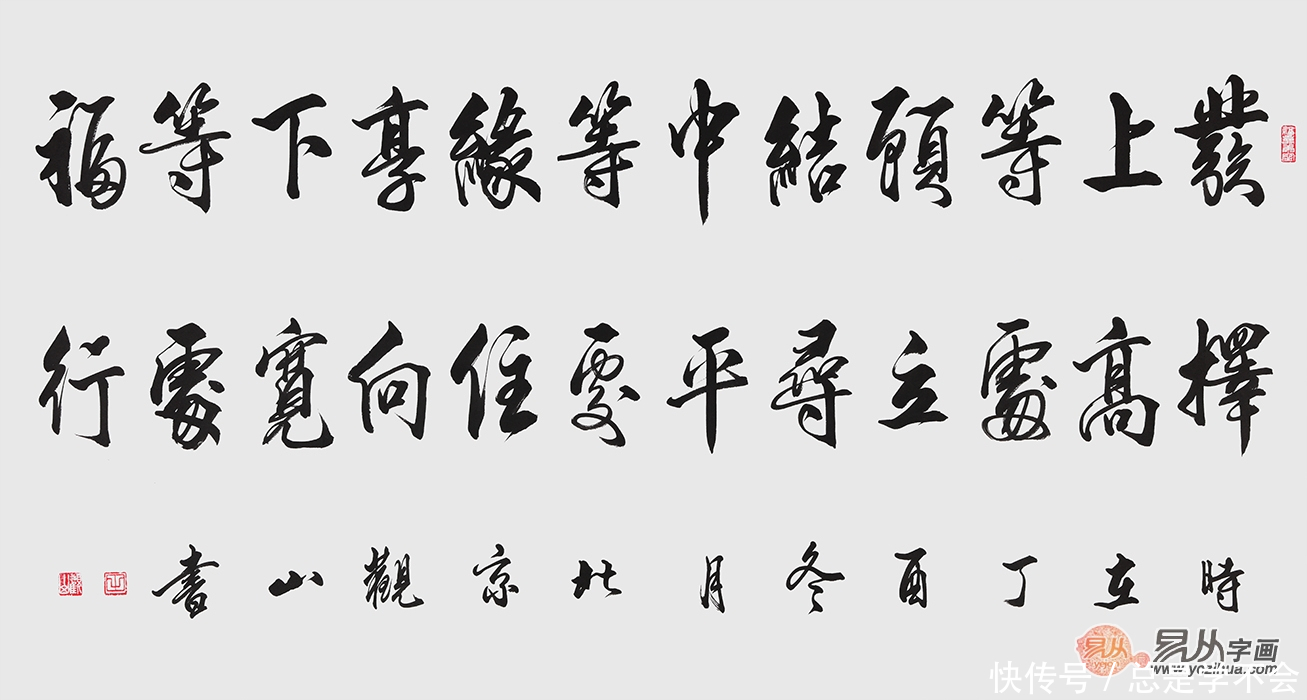 發上等願結中等緣享下等福
擇高處立尋平處住向寬處行
時在丁酉冬月北京觀山書
易从字画
www.yczihua.com
快传号 / 总是学不会